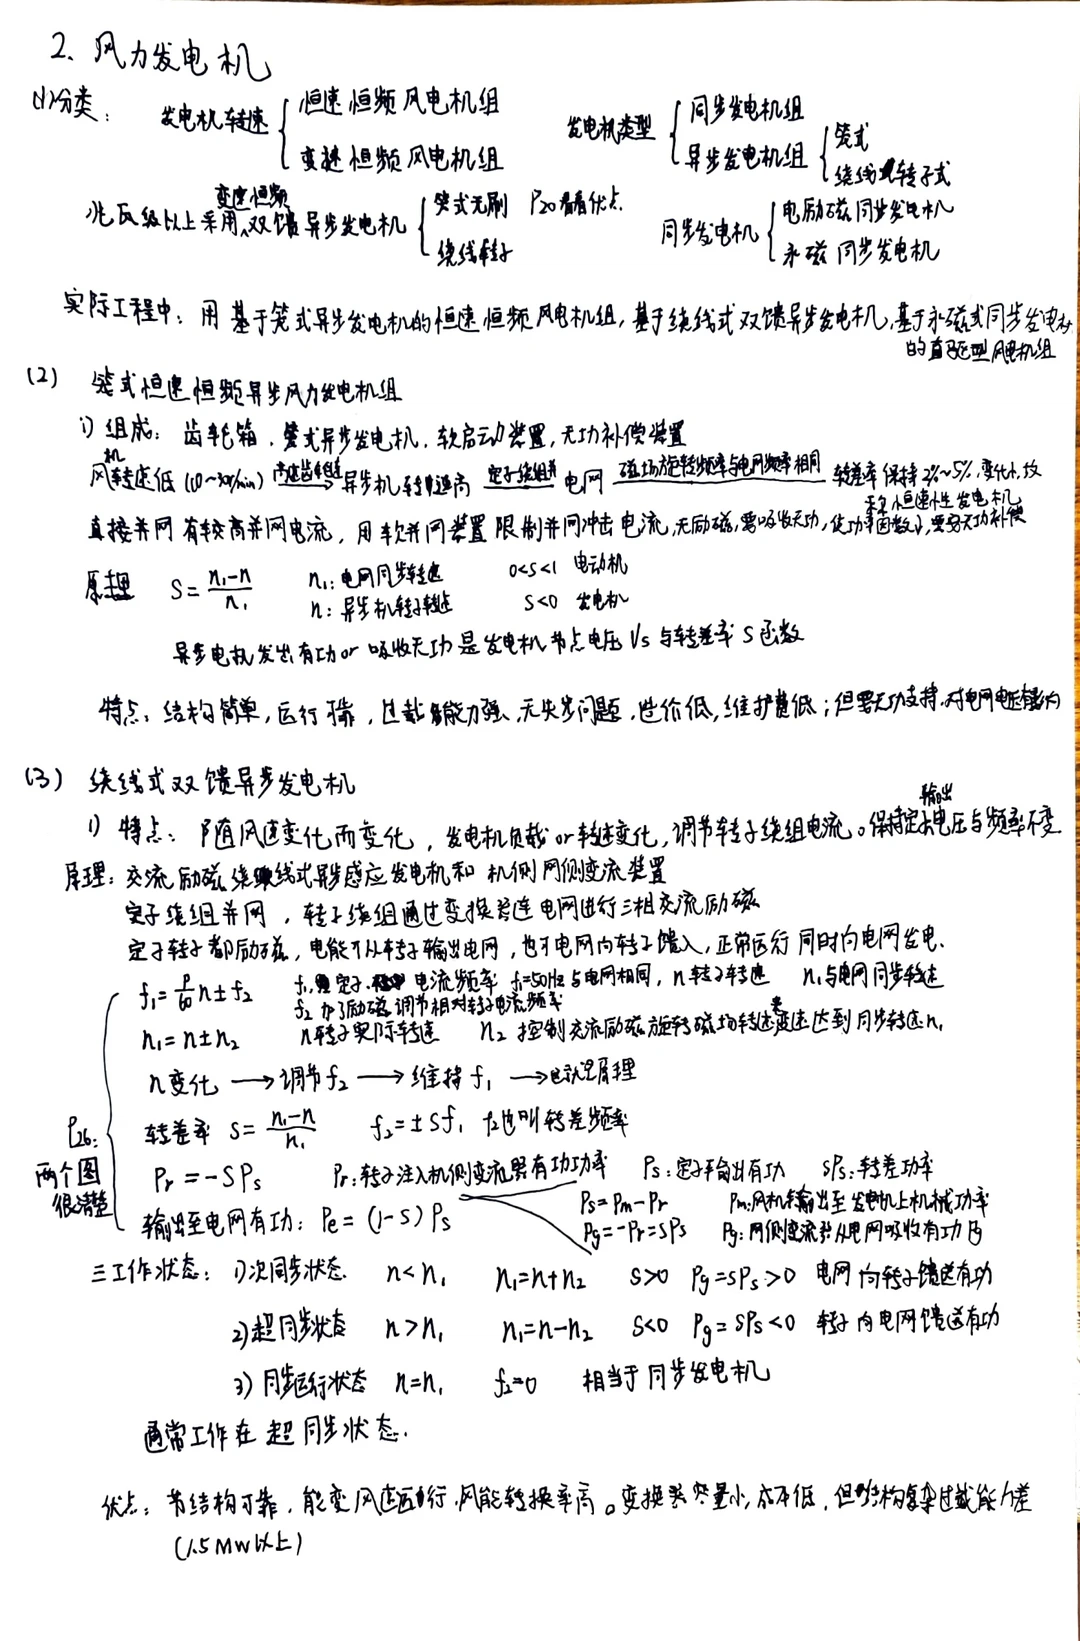 2、风力发电机
(1)分类：
发电机转速 { 恒速恒频风电机组
变速恒频风电机组
发电机类型 { 同步发电机组
异步发电机组 { 笼式
绕线式转子式
兆瓦级以上采用变速恒频双馈异步发电机 { 笼式无刷 P20看看优点.
绕线转子
同步发电机 { 电励磁同步发电机
永磁同步发电机
实际工程中：用基于笼式异步发电机的恒速恒频风电机组，基于绕线式双馈异步发电机，基于永磁式同步发电机
的直驱型风电机组
(2) 笼式恒速恒频异步风力发电机组
1) 组成：齿轮箱、笼式异步发电机、软启动装置，无功补偿装置
风机转速低 (10~30r/min) 高速齿轮箱→ 异步机转速高 定子绕组并 电网 磁场旋转频率与电网频率相同 转差率保持2%~5%，变化小，故
称恒速恒性发电机
直接并网有较高并网电流，用软并网装置限制并网冲击电流，无励磁，需吸收无功，使功率因数小，要无功补偿
原理 S = (n₁-n)/n₁ n₁：电网同步转速 0<S<1 电动机
n：异步机转子转速 S<0 发电机
异步电机发出有功or吸收无功是发电机节点电压Vs与转差率S函数
特点：结构简单，运行可靠，过载能力强、无失步问题，造价低，维护费低；但要无功支持，对电网电压有影响
(3) 绕线式双馈异步发电机
1) 特点：随风速变化而变化，发电机负载or转速变化，调节转子绕组电流。保持定子输出电压与频率不变
原理：交流励磁绕线式异步感应发电机和机侧网侧变流装置
定子绕组并网，转子绕组通过变换器连电网进行三相交流励磁
定子转子都励磁，电能可从转子输出电网，也可电网向转子馈入，正常运行同时向电网发电.
f₁ = (p/60)n ± f₂ f₁ 定子 电流频率 f₁=50Hz与电网相同，n转子转速 n₁与电网同步转速
f₂ 为了励磁调节相对转子电流频率
n₁ = n ± n₂ n转子实际转速 n₂ 控制交流励磁旋转磁场转速变速达到同步转速n₁
n变化 → 调节f₂ → 维持f₁ → 也就是原理
转差率 S = (n₁-n)/n₁ f₂ = ±Sf₁ f₂也叫转差频率
P26：
两个图
很清楚
Pr = -SPs Pr：转子注入机侧变流器有功功率 Ps：定子输出有功 SPs：转差功率
Ps = Pm-Pr Pm：风机输出至发电机上机械功率
输出至电网有功：Pe = (1-S)Ps Pg = -Pr = SPs Pg：网侧变流器从电网吸收有功Pg
三工作状态：1)次同步状态 n<n₁ n₁=n+n₂ S>0 Pg=SPs>0 电网向转子馈送有功
2)超同步状态 n>n₁ n₁=n-n₂ S<0 Pg=SPs<0 转子向电网馈送有功
3) 同步运行状态 n=n₁ f₂=0 相当于同步发电机
通常工作在超同步状态.
优点：结构可靠，能变风速运行，风能转换率高。变换器容量小，成本低，但结构复杂过载能力差
(1.5MW以上)